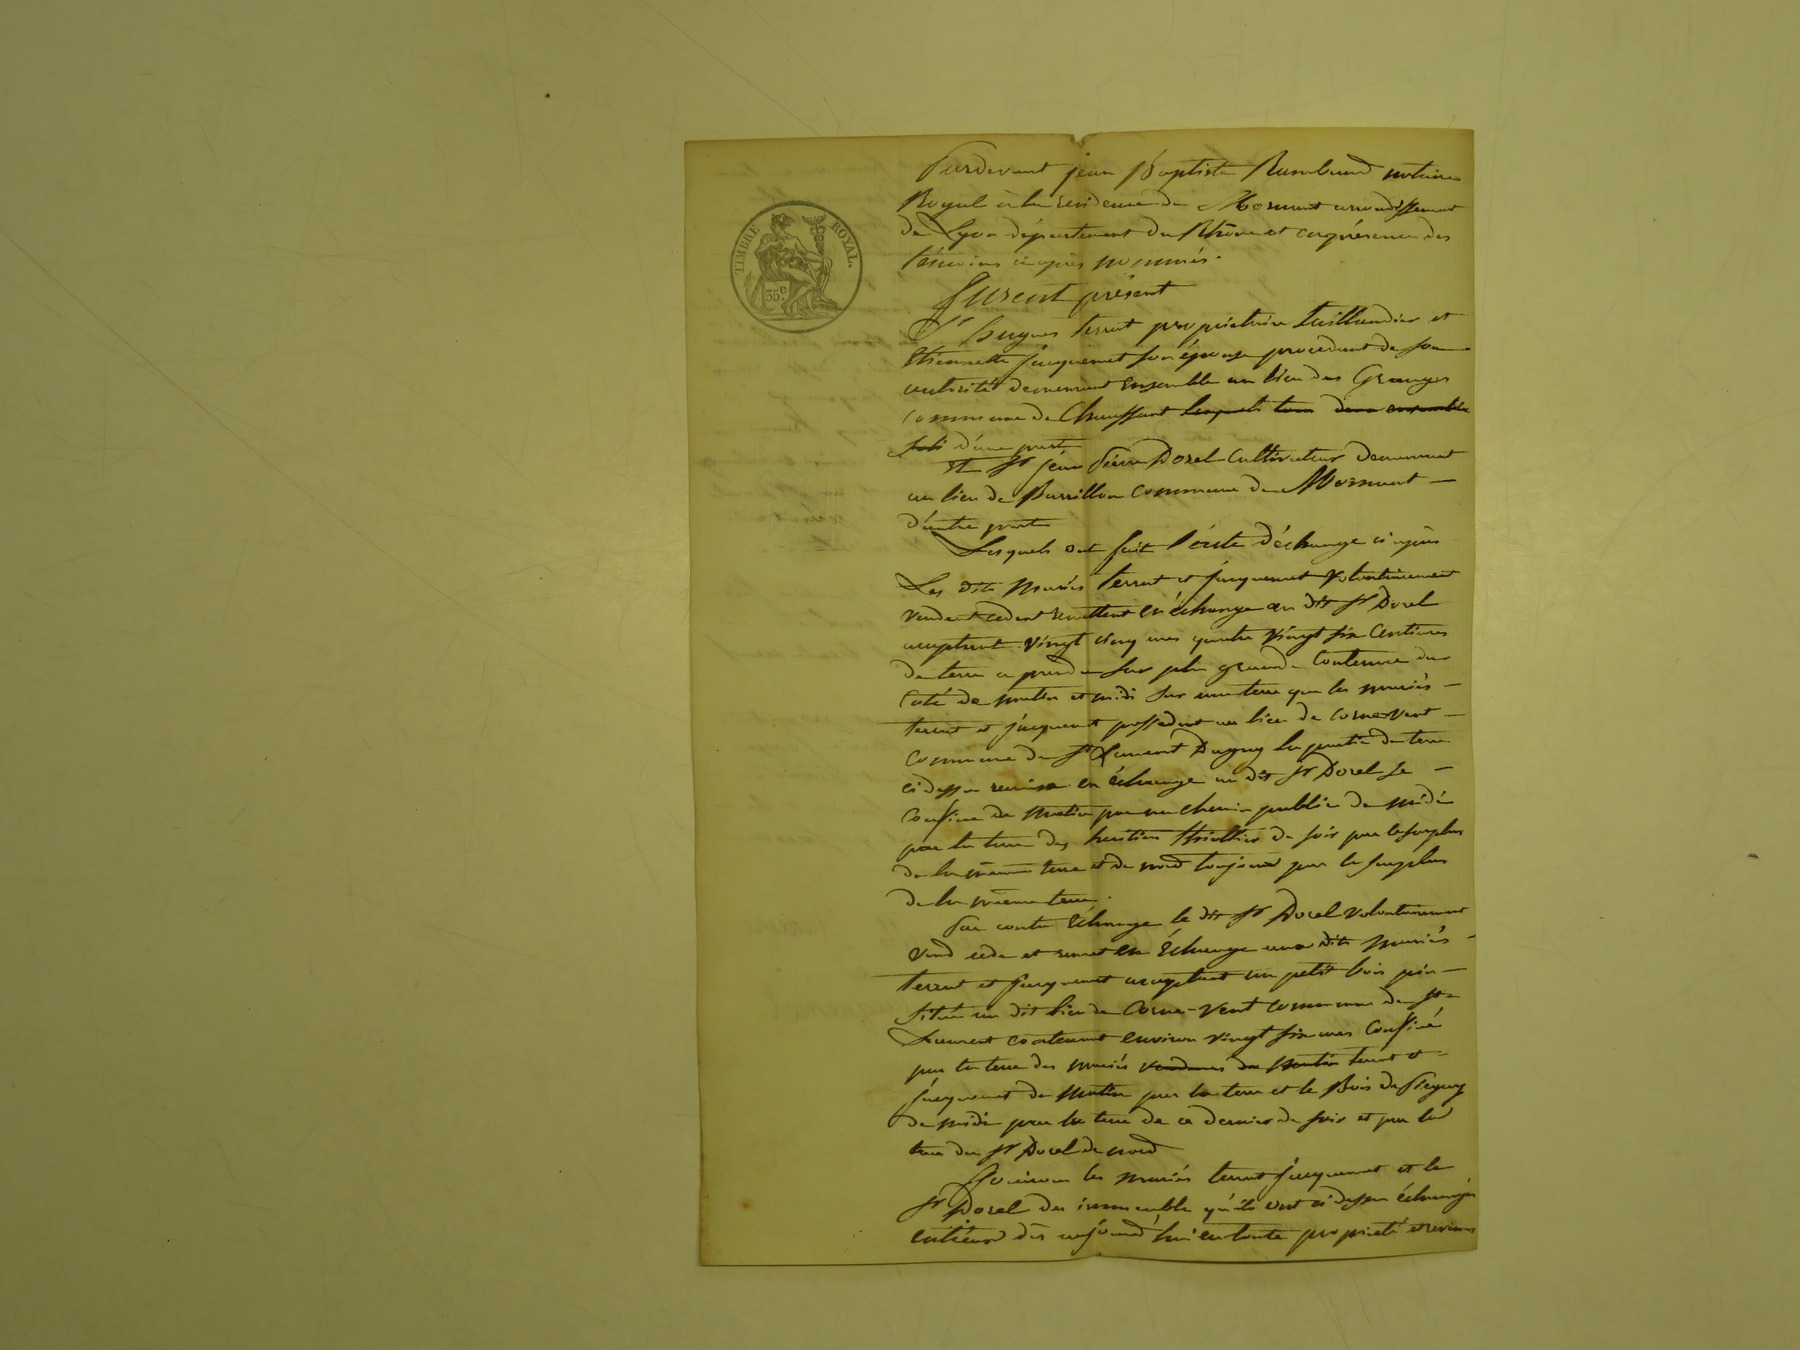 TIMBRE ROYAL.
35c.
Pardevant jean Baptiste Rambaud notaire
Royal à la residence de Mornant arrondissement
de Lyon département du Rhône et en présence des
témoins ci après nommés.
furent présent
Sr hugues terrat propriétaire taillandier et
Etiennette jacquemet son épouse procedant de son
autorité demeurant ensemble au lieu des Granges
commune de Chaussant lesquels tous deux ensemble
d'une part
et Sr jean Pierre Dorel Cultivateur demeurant
au lieu de Barillon commune de Mornant
d'autre part
Lesquels ont fait l'acte d'échange ci après
Les dits mariés terrat et jacquemet volontairement
vendent cedent remettent en échange au dit Sr Dorel
acceptant vingt cinq ares quatre vingt six Centiares
de terre a prendre sur plus grande Contenue du
Coté de matin et midi sur une terre que les mariés
terrat et jacquemet possedent au lieu de Corne-Vent
commune de St Laurent Dagny la partie de terre
ci dessus remise en échange au dit Sr Dorel se
Confine de matin par un chemin public de midi
par la terre des heritiers de soir par le surplus
de la même terre et de nord toujours par le surplus
de la même terre.
Par contre échange le dit Sr Dorel volontairement
vend cede et remet en Echange aux dits mariés
terrat et jacquemet acceptant un petit bois pin
situé au dit lieu de Corne-Vent commune de St
Laurent contenant environ vingt six ares Confiné
par la terre des mariés terrat et
jacquemet de matin par la terre et le Bois de
de midi par la terre de ce dernier de soir et par la
terre du Sr Dorel de nord
Jouiront les mariés terrat jacquemet et le
Sr Dorel des immeubles qu'ils ont ci dessus échangés
entr'eux dès aujourd'hui en toute propriété et revenus